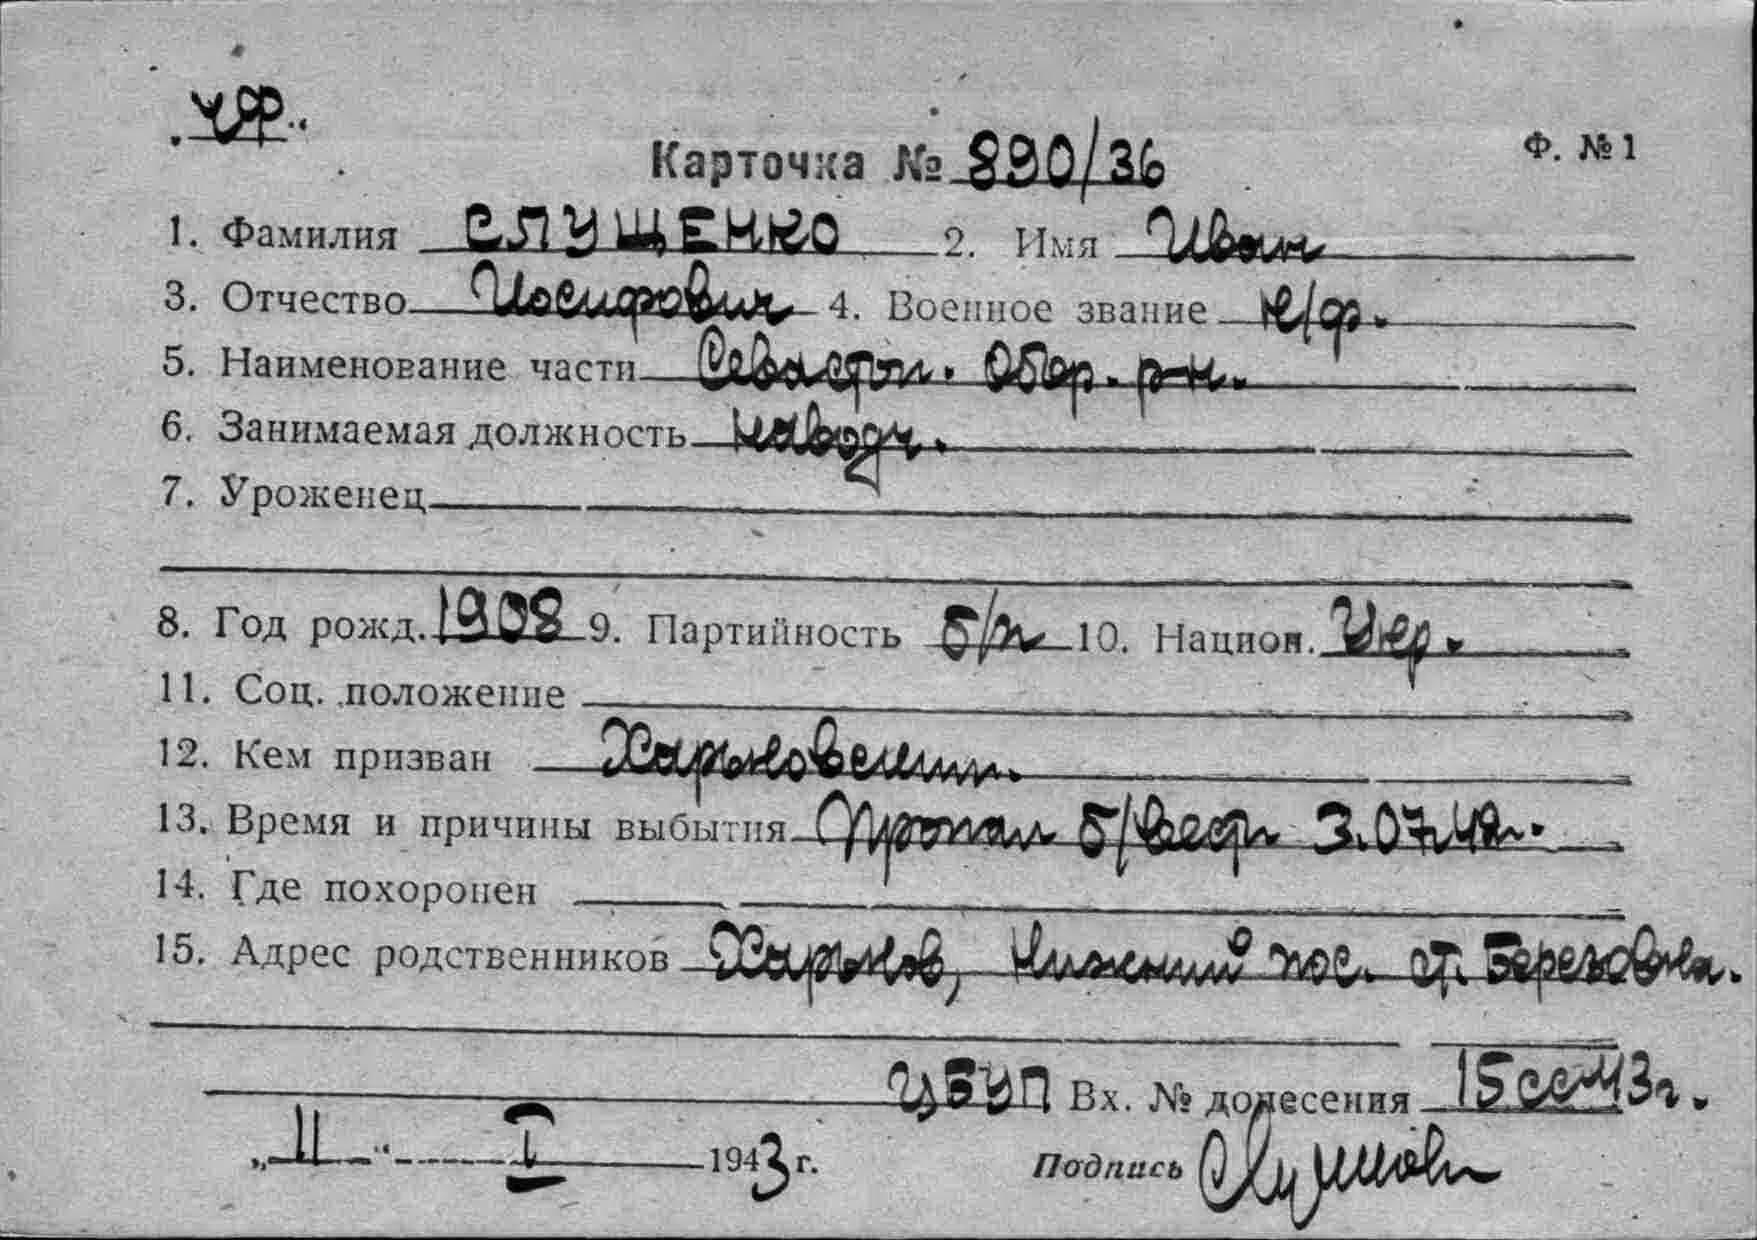 „ЧФ“
Карточка № 890/36 Ф. № 1
1. Фамилия СЛУЩЕНКО 2. Имя Иван
3. Отчество Иосифович 4. Военное звание к/ф.
5. Наименование части Севастоп. Обор. р-н.
6. Занимаемая должность наводч.
7. Уроженец
8. Год рожд. 1908 9. Партийность б/п 10. Национ. Укр.
11. Соц. положение
12. Кем призван Харьковским.
13. Время и причины выбытия Пропал б/вест 3.07.42г.
14. Где похоронен
15. Адрес родственников Харьков, Нижний пос. ст. Березовка.
ЦБУП Вх. № донесения 15сс 43г.
„11“ I 1943 г. Подпись